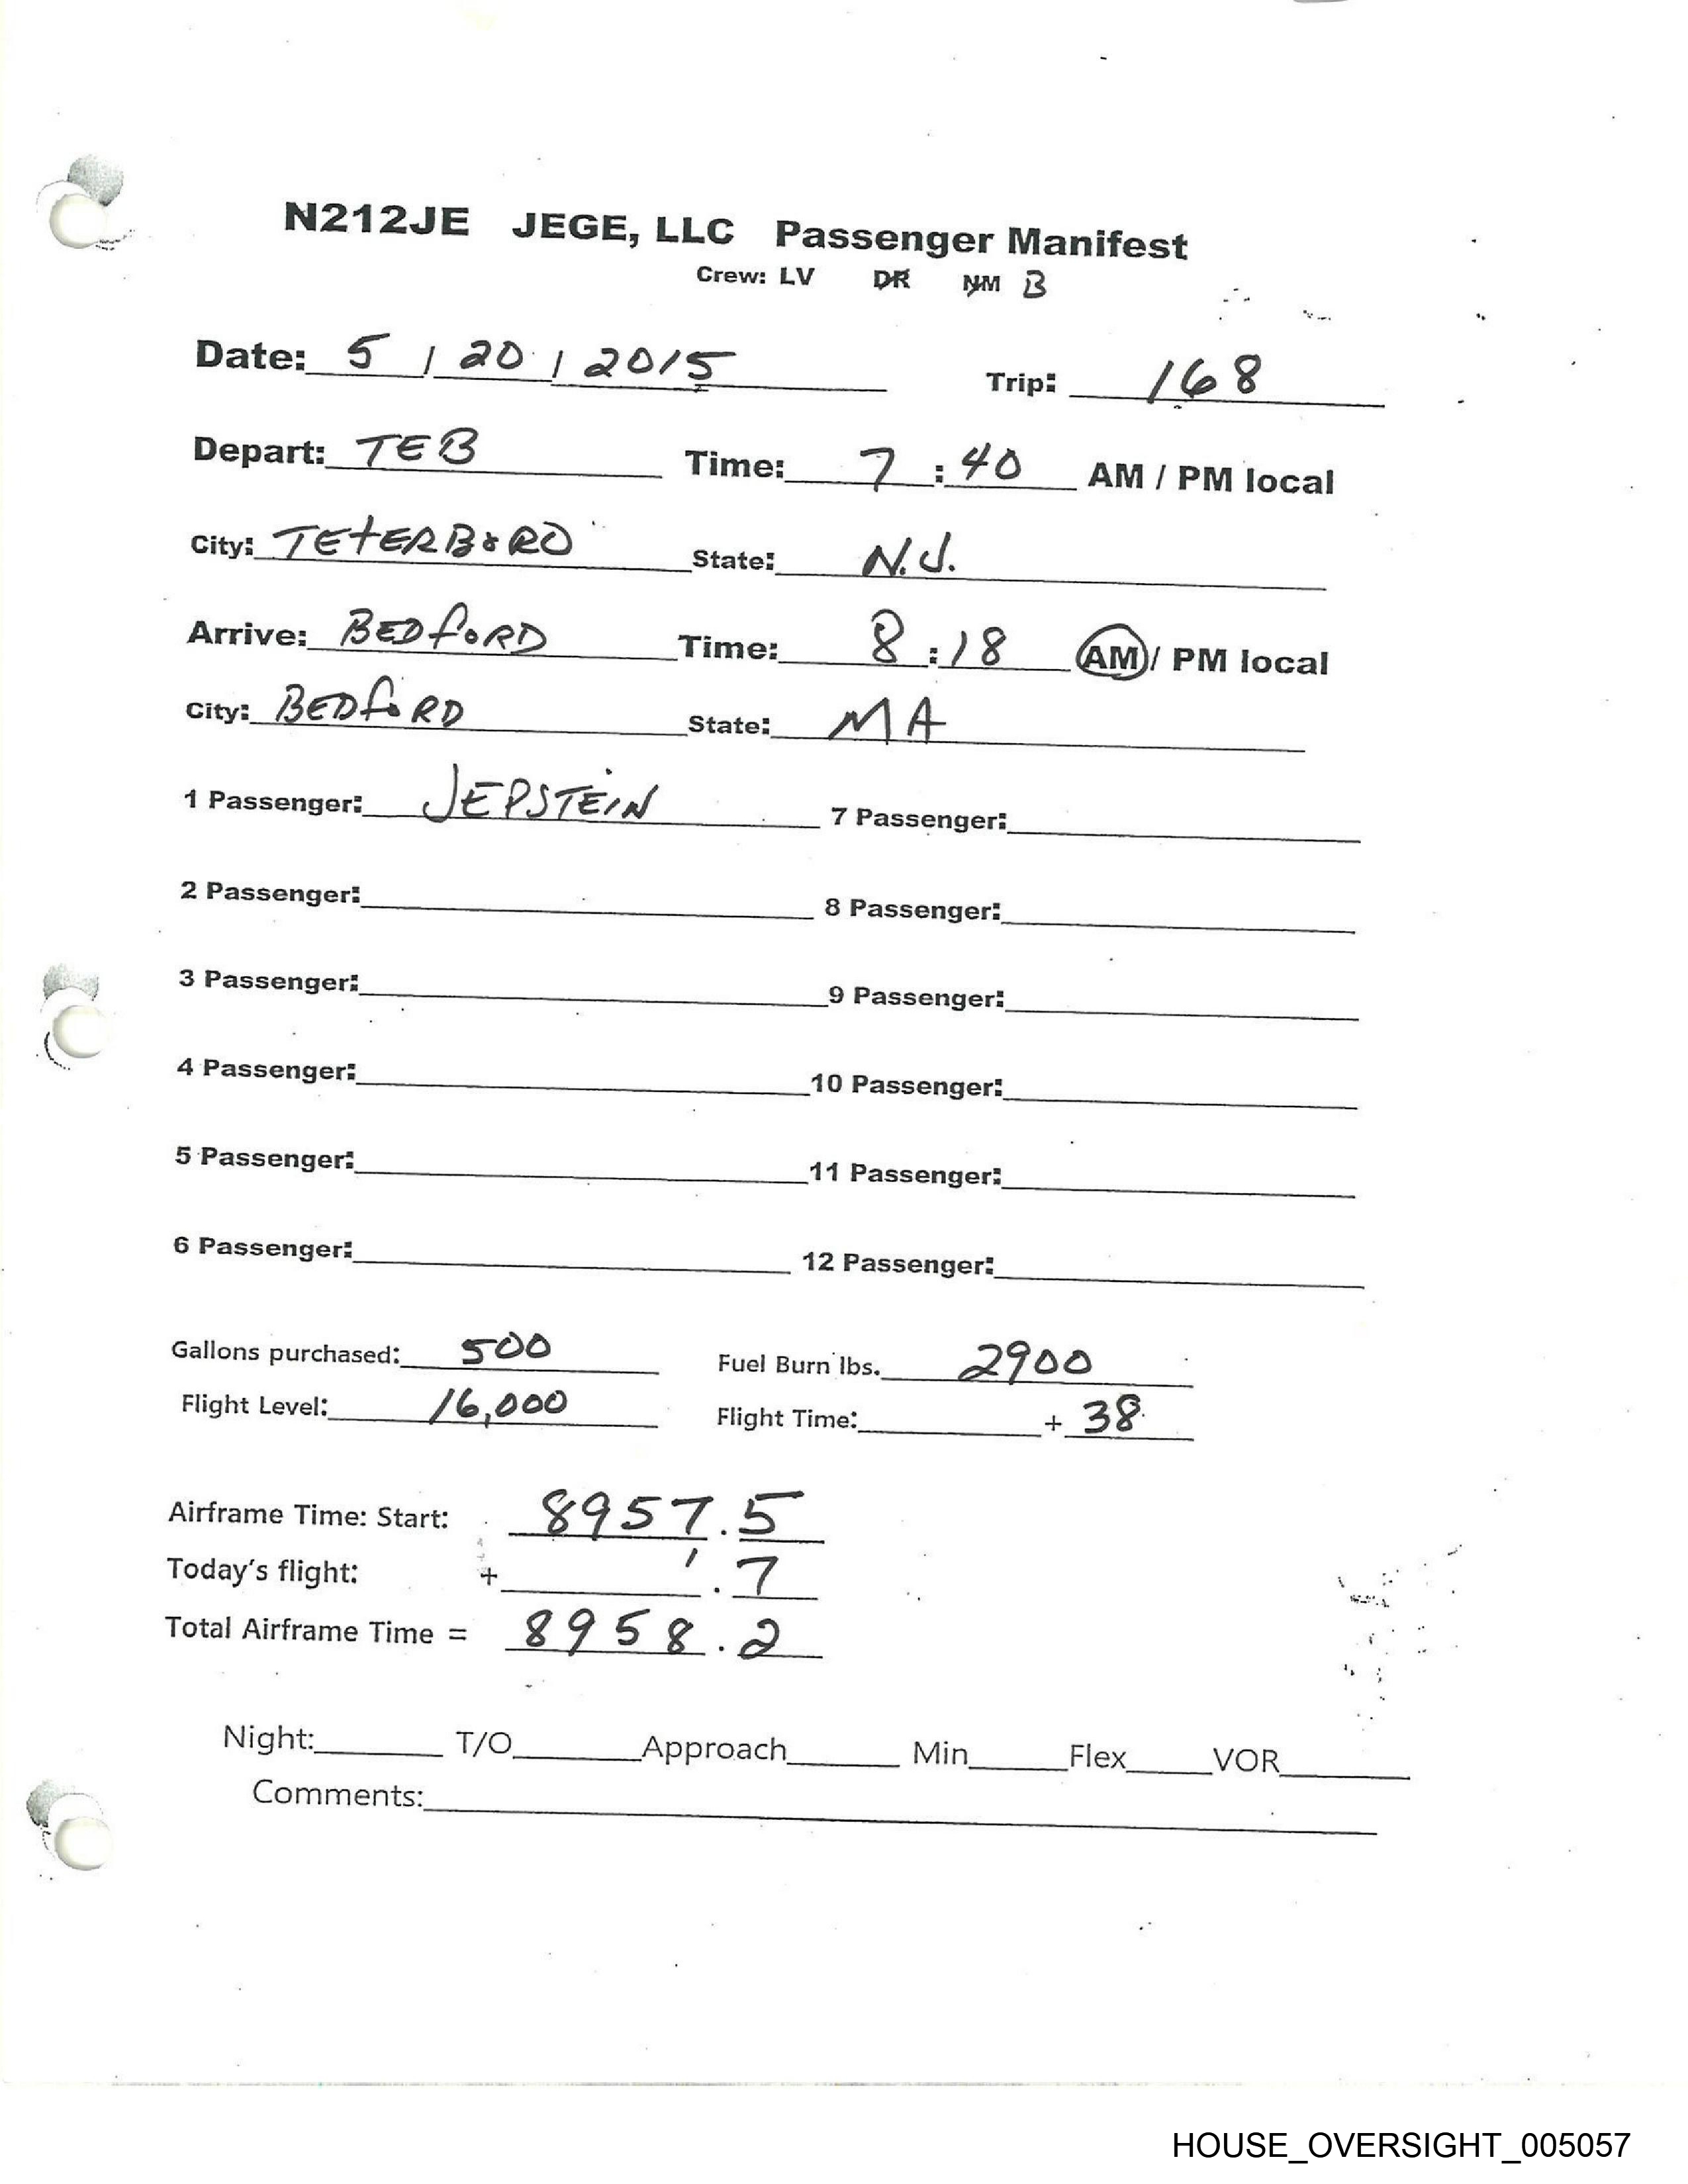 N212JE JEGE, LLC Passenger Manifest
Crew: LV DR NM B
Date: 5 / 20 / 2015 Trip: 168
Depart: TEB Time: 7 : 40 AM / PM local
City: TETERBORO State: N.J.
Arrive: BEDFORD Time: 8 : 18 AM / PM local
City: BEDFORD State: MA
1 Passenger: JEPSTEIN 7 Passenger:
2 Passenger: 8 Passenger:
3 Passenger: 9 Passenger:
4 Passenger: 10 Passenger:
5 Passenger: 11 Passenger:
6 Passenger: 12 Passenger:
Gallons purchased: 500 Fuel Burn lbs. 2900
Flight Level: 16,000 Flight Time: + 38
Airframe Time: Start: 8957.5
Today's flight: + .7
Total Airframe Time = 8958.2
Night: T/O Approach Min Flex VOR
Comments:
HOUSE_OVERSIGHT_005057